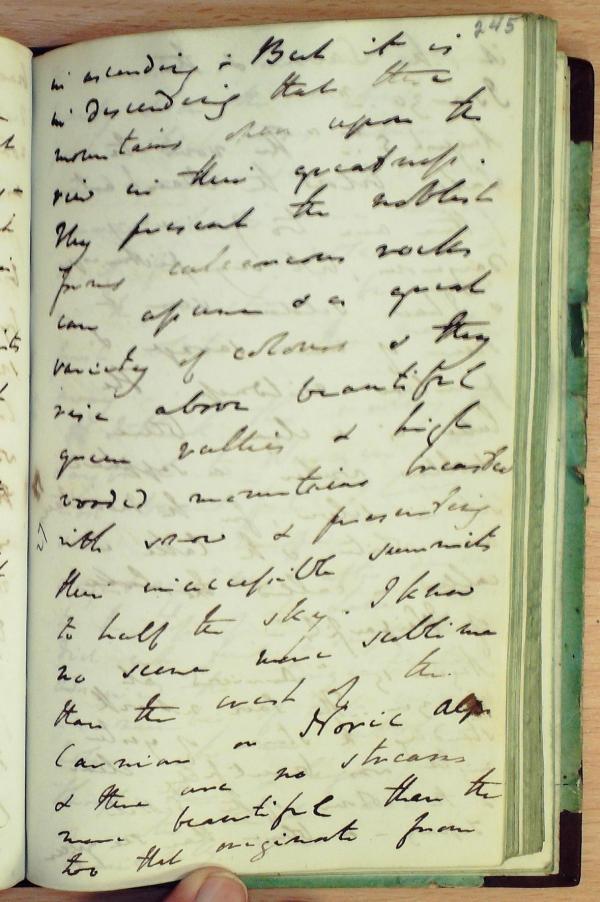 245
in ascending : But it is
in descending that these
mountains open upon the
view in their greatness.
They present the noblest
forms calcareous rocks
can assume & a great
variety of colours & they
rise above beautiful
green vallies & high
wooded mountains breasted
with snow & presenting
their inaccessible summits
to half the sky. I know
no scene more sublime
than the crest of the
Carnian or Noric Alps
& there are no streams
more beautiful than the
two that originate from